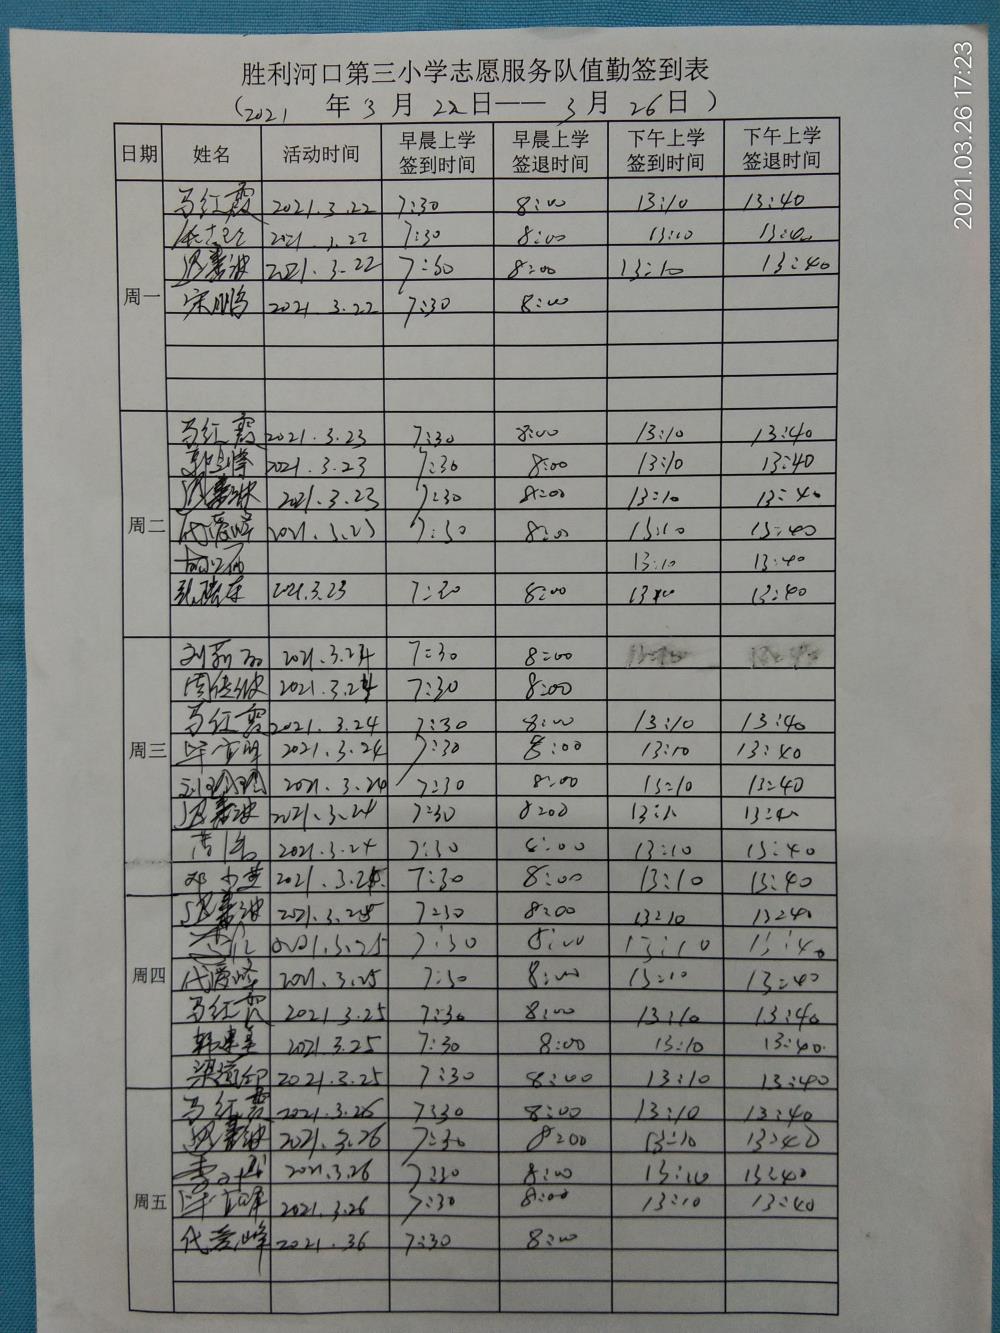 胜利河口第三小学志愿服务队值勤签到表
(2021 年 3 月 22日—— 3 月 26日 )
日期 姓名 活动时间 早晨上学签到时间 早晨上学签退时间 下午上学签到时间 下午上学签退时间
周一
马红霞 2021.3.22 7:30 8:00 13:10 13:40
2021.3.22 7:30 8:00 13:10 13:40
2021.3.22 7:30 8:00 13:10 13:40
宋鹏 2021.3.22 7:30 8:00
周二
马红霞 2021.3.23 7:30 8:00 13:10 13:40
2021.3.23 7:30 8:00 13:10 13:40
2021.3.23 7:30 8:00 13:10 13:40
代爱峰 2021.3.23 7:30 8:00 13:10 13:40
13:10 13:40
2021.3.23 7:30 8:00 13:40
周三
2021.3.24 7:30 8:00
2021.3.24 7:30 8:00
马红霞 2021.3.24 7:30 8:00 13:10 13:40
2021.3.24 7:30 8:00 13:10 13:40
2021.3.24 7:30 8:00 13:10 13:40
2021.3.24 7:30 8:00 13:10 13:40
2021.3.24 7:30 8:00 13:10 13:40
邓小燕 7:30 8:00 13:10 13:40
周四
7:30 8:00 13:10 13:40
2021.3.25 7:30 8:00 13:10 13:40
代爱峰 2021.3.25 7:30 8:00 13:10 13:40
马红霞 2021.3.25 7:30 8:00 13:10 13:40
2021.3.25 7:30 8:00 13:10 13:40
2021.3.25 7:30 8:00 13:10 13:40
周五
马红霞 2021.3.26 7:30 8:00 13:10 13:40
2021.3.26 7:30 8:00 13:10 13:40
2021.3.26 7:30 8:00 13:10 13:40
2021.3.26 7:30 8:00 13:10 13:40
代爱峰 2021.36 7:30 8:00
2021.03.26 17:23